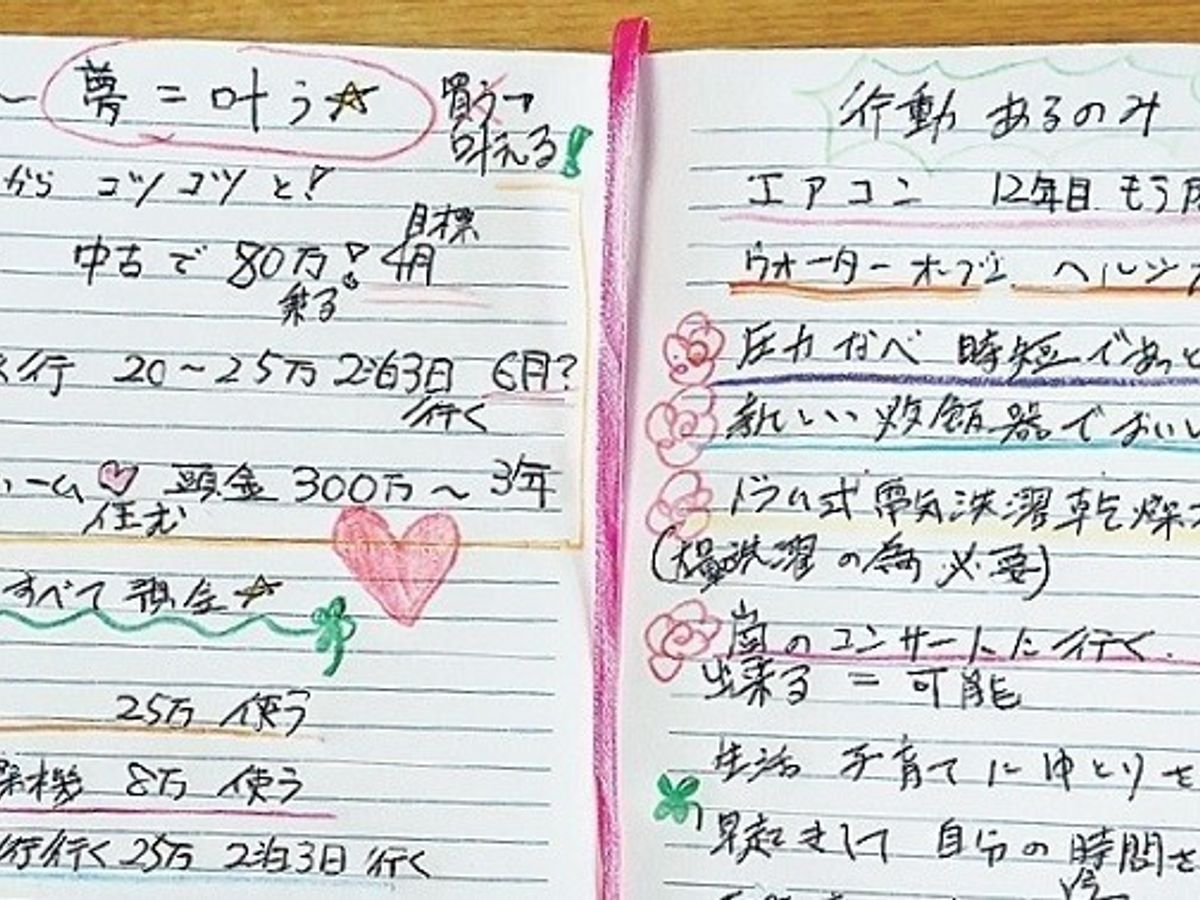 夢=叶う☆
買う→
叶える!
から コツコツと!
目標
中古で80万! 4月
乗る
行 20~25万 2泊3日 6月?
行く
ーム♡ 頭金 300万~3年
住む
すべて預金☆
25万 使う
機 8万 使う
行行く 25万 2泊3日 行く
行動 あるのみ
エアコン 12年目 もう
ウォーターオーブン ヘルシ
圧力なべ 時短であっ
新しい炊飯器でおいし
ドラム式電気洗濯乾燥
(大量洗濯の為必要)
嵐のコンサートに行く.
出来る = 可能
生活 子育てにゆとりを
早起きして 自分の時間を